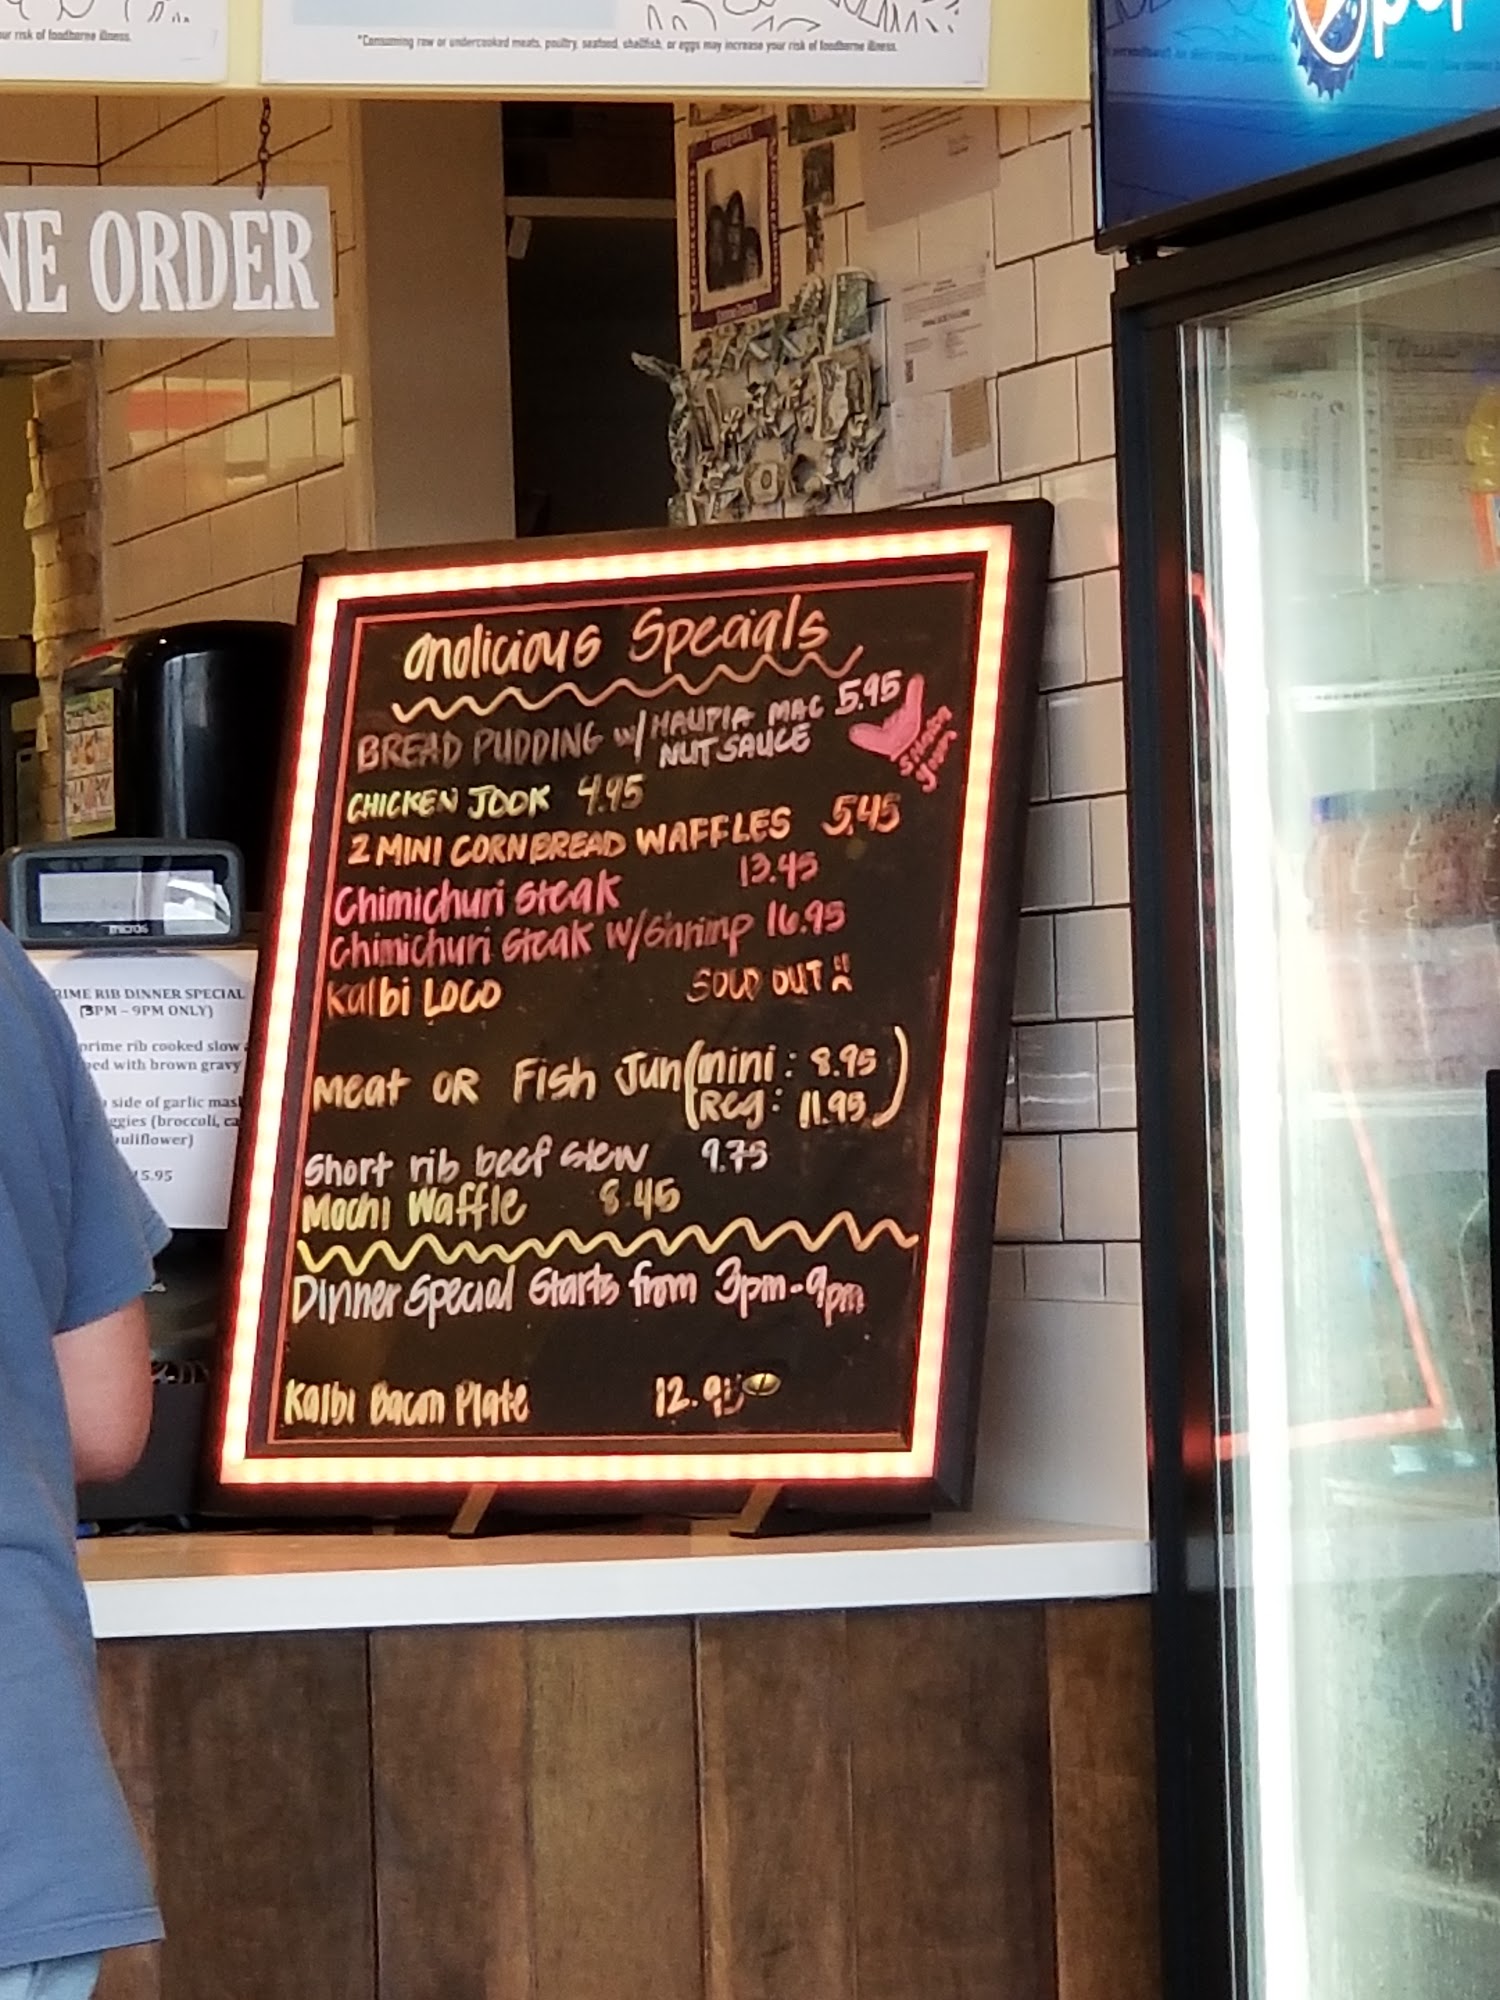 our risk of foodborne illness.
*Consuming raw or undercooked meats, poultry, seafood, shellfish, or eggs may increase your risk of foodborne illness.
NE ORDER
onolicious Specials
BREAD PUDDING w/ HAUPIA MAC 5.95
NUT SAUCE
CHICKEN JOOK 4.95
2 MINI CORNBREAD WAFFLES 5.45
Chimichuri Steak 13.45
Chimichuri Steak w/Shrimp 16.95
Kalbi LOCO SOLD OUT
Meat OR Fish Jun (mini: 8.95
Reg: 11.95)
Short rib beef stew 9.75
Mochi Waffle 8.45
Dinner Special Starts from 3pm-9pm
Kalbi Bacon Plate 12.95
micros
RIME RIB DINNER SPECIAL
(3PM – 9PM ONLY)
prime rib cooked slow
ped with brown gravy
side of garlic mas
ggies (broccoli, ca
uliflower)
5.95